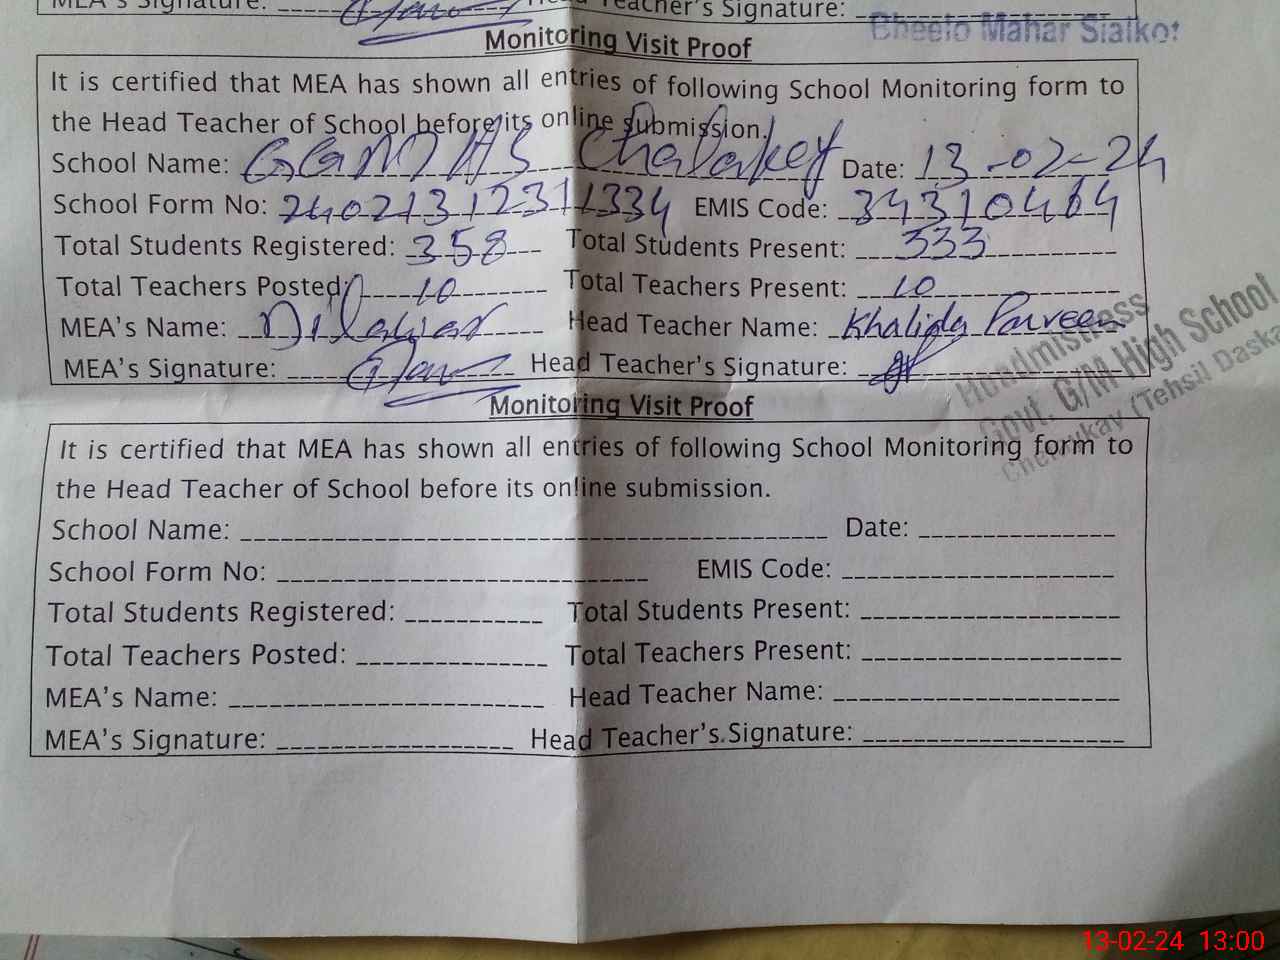 MEA's Signature: ____________ Head Teacher's Signature: ____________
Bheelo Mahar Sialkot
Monitoring Visit Proof
It is certified that MEA has shown all entries of following School Monitoring form to
the Head Teacher of School before its online submission.
School Name: GGMHS Chalakey Date: 13-02-24
School Form No: 24021312311334 EMIS Code: 34310464
Total Students Registered: 358 Total Students Present: 333
Total Teachers Posted: 10 Total Teachers Present: 10
MEA's Name: Dilawar Head Teacher Name: Khalida Parveen
MEA's Signature: ____________ Head Teacher's Signature: ____________
Headmistress
Govt. G/M High School
(Tehsil Daska
Monitoring Visit Proof
It is certified that MEA has shown all entries of following School Monitoring form to
the Head Teacher of School before its online submission.
School Name: ____________ Date: ____________
School Form No: ____________ EMIS Code: ____________
Total Students Registered: ____________ Total Students Present: ____________
Total Teachers Posted: ____________ Total Teachers Present: ____________
MEA's Name: ____________ Head Teacher Name: ____________
MEA's Signature: ____________ Head Teacher's Signature: ____________
13-02-24 13:00